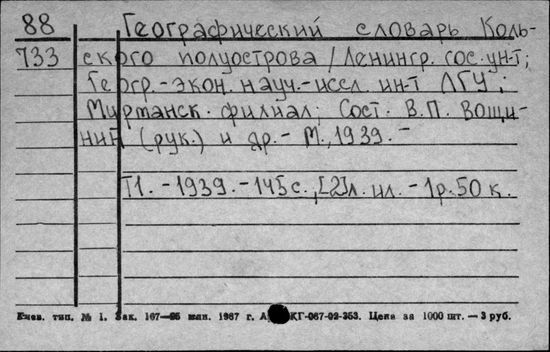 88 Географический словарь Коль-
733 ского полуострова / Ленингр. гос. ун-т;
Геогр.-экон. науч.-иссл. ин-т ЛГУ;
Мурманск. филиал; Сост. В.П. Вощи-
нин (рук.) и др. - М., 1939. -
Т1. - 1939. - 145 с., [2]л. ил. - 1р. 50 к.
Киев. тип. № 1. Зак. 167—95 млн. 1987 г. КГ-067-02-353. Цена за 1000 шт. — 3 руб.